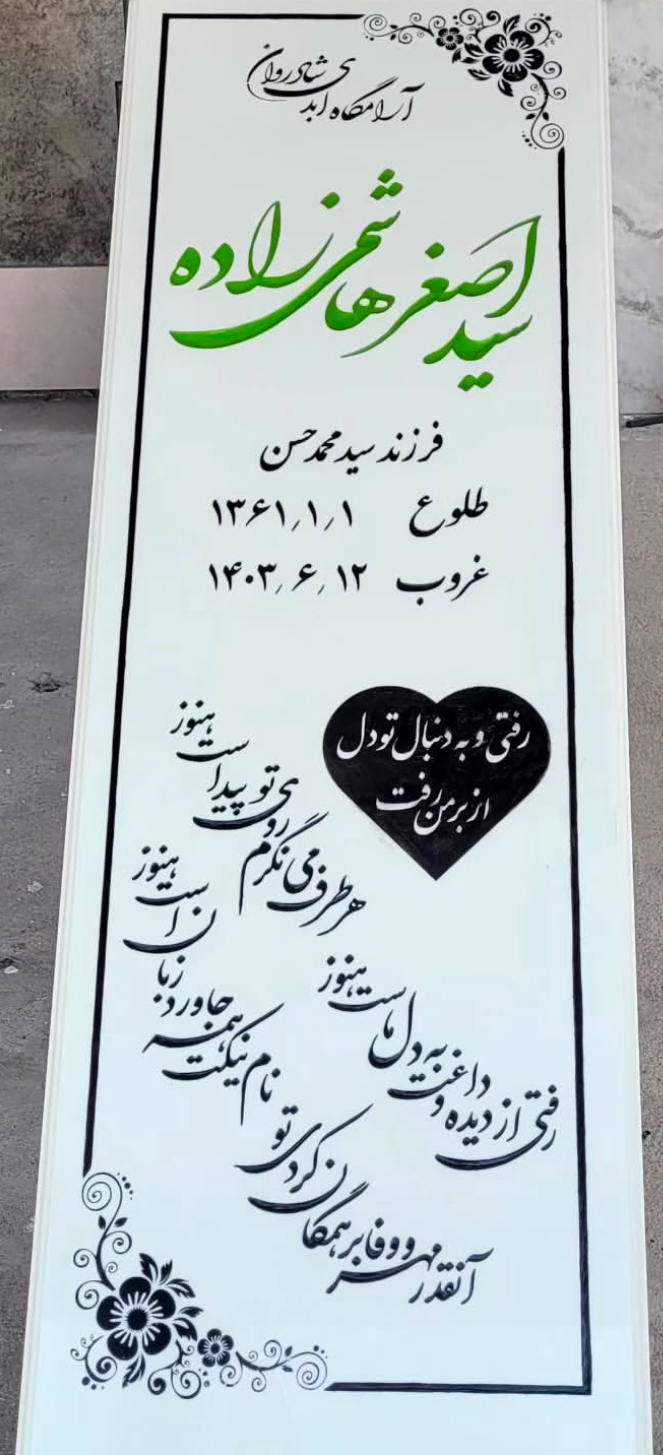 آرامگاه ابدی شادروان
سید اصغر هاشمی زاده
فرزند سید محمد حسن
طلوع ۱۳۶۱٫۱٫۱
غروب ۱۴۰۳٫۶٫۱۲
رفتی و به دنبال تو دل
از بر من رفت
هر طرف می نگرم روی تو پیداست هنوز
رفتی از دیده و داغت به دل ماست هنوز
آنقدر مهر و وفا بر همگان کردی تو
نام نیکت همه جا ورد زبان است هنوز